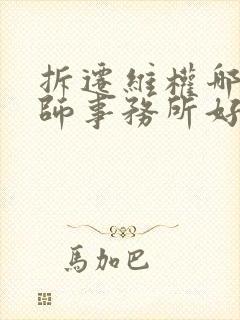 拆遷維權那
師事務所好
馬加巴